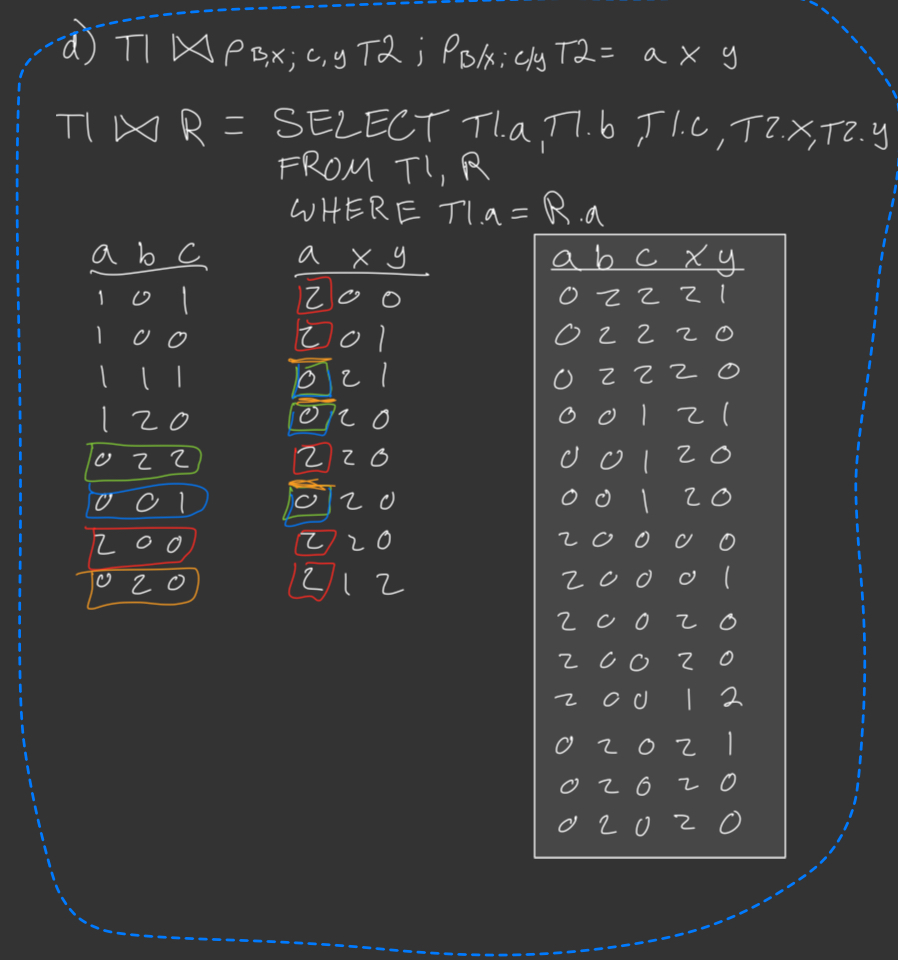 d) T1 ⋈ ρ B,x; c,y T2 ; ρ B/x; c/y T2 = a x y
T1 ⋈ R = SELECT T1.a, T1.b, T1.c, T2.x, T2.y
FROM T1, R
WHERE T1.a = R.a
a b c
1 0 1
1 0 0
1 1 1
1 2 0
0 2 2
0 0 1
2 0 0
0 2 0
a x y
2 0 0
2 0 1
0 2 1
0 2 0
2 2 0
0 2 0
2 2 0
2 1 2
a b c x y
0 2 2 2 1
0 2 2 2 0
0 2 2 2 0
0 0 1 2 1
0 0 1 2 0
0 0 1 2 0
2 0 0 0 0
2 0 0 0 1
2 0 0 2 0
2 0 0 2 0
2 0 0 1 2
0 2 0 2 1
0 2 0 2 0
0 2 0 2 0